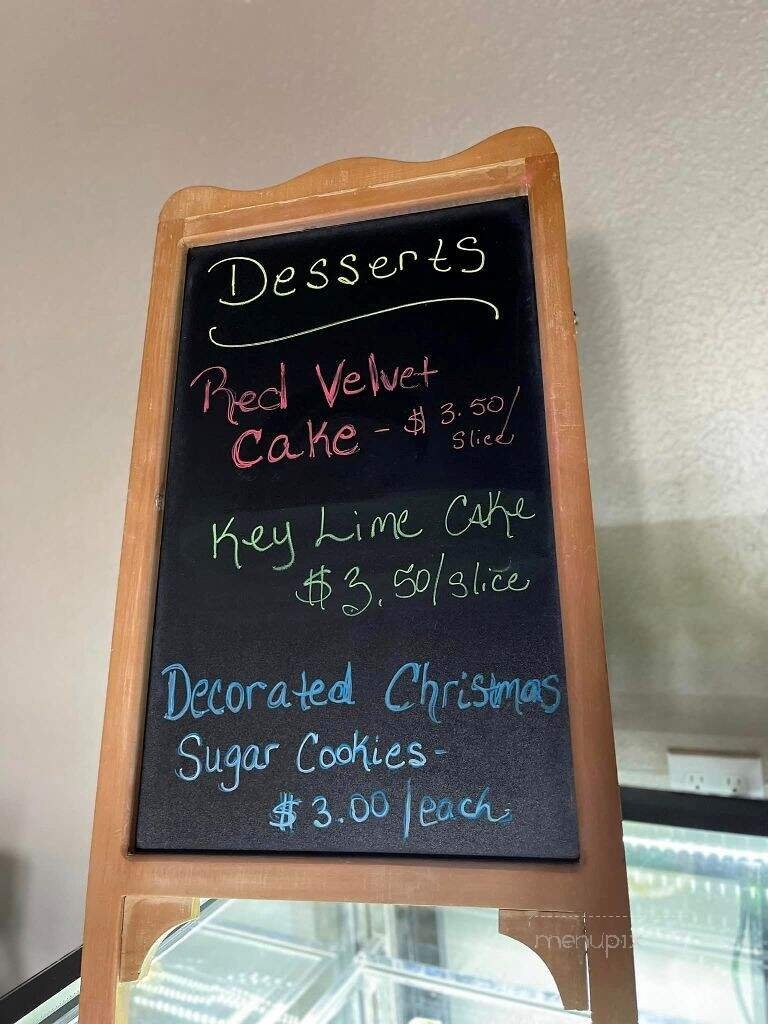 Desserts
Red Velvet
Cake - $3.50/
Slice
Key Lime Cake
$3.50/slice
Decorated Christmas
Sugar Cookies-
$3.00/each